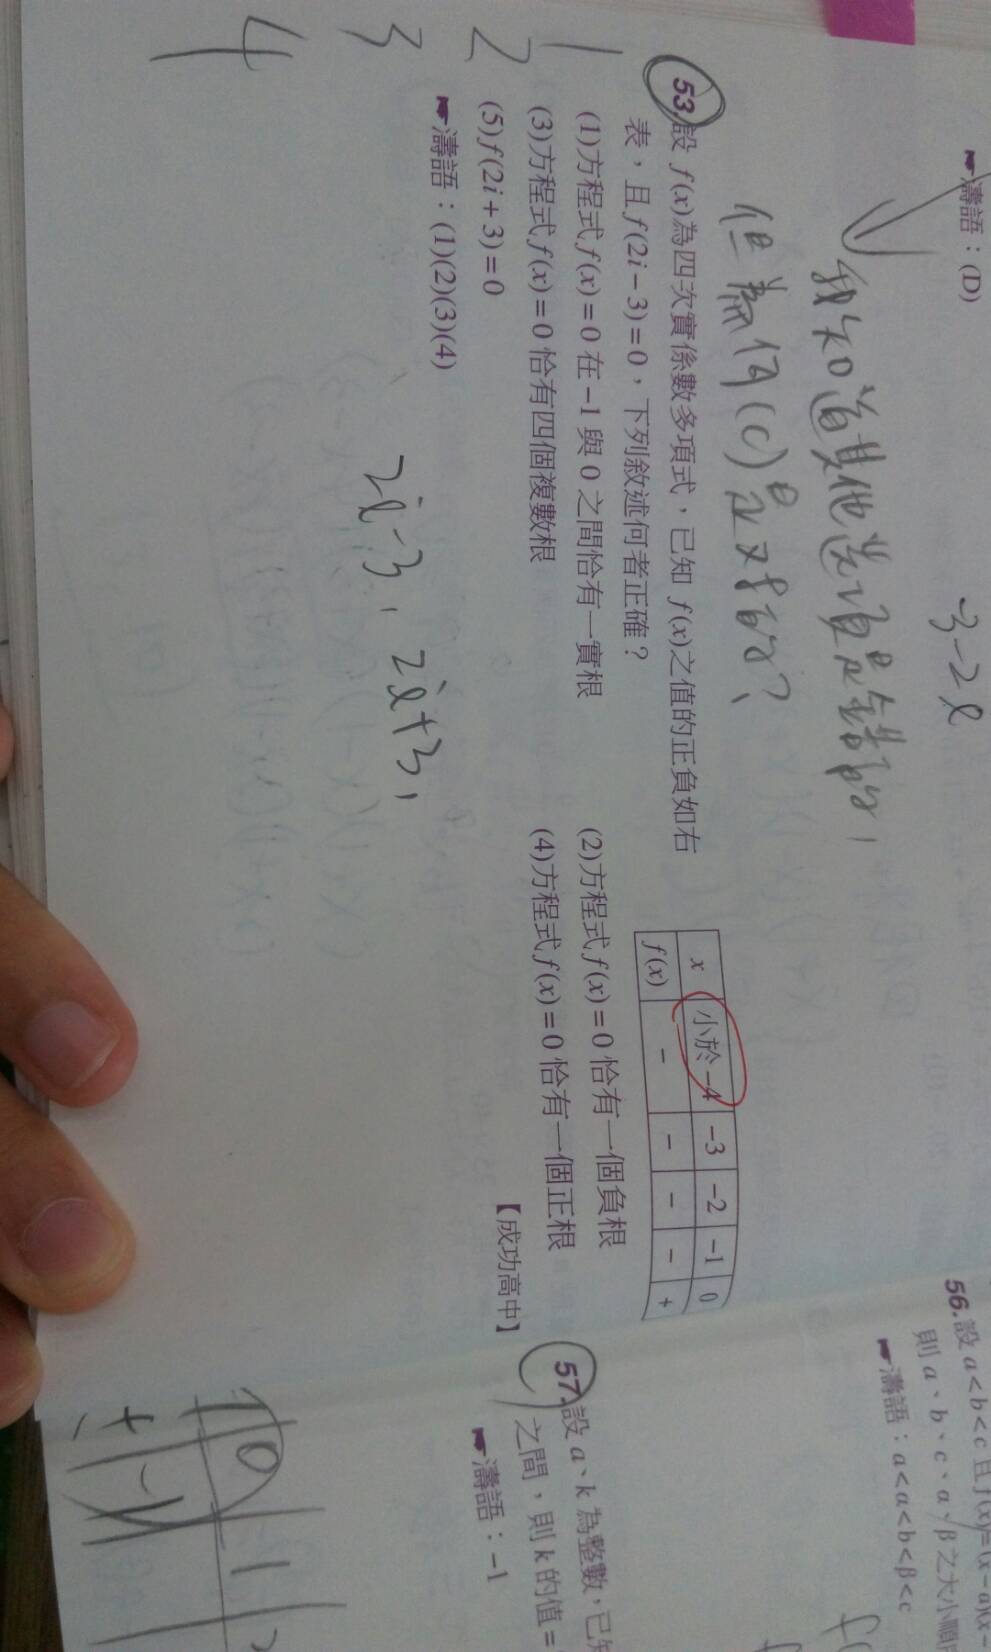 ☛濤語：(D)
3-2i
我知道其他選項是錯的，
但為何(C)是對的？
53.設 f(x)為四次實係數多項式，已知 f(x)之值的正負如右
表，且 f(2i－3)=0，下列敘述何者正確？
(1)方程式 f(x)=0 在 –1 與 0 之間恰有一實根
(2)方程式 f(x)=0 恰有一個負根
(3)方程式 f(x)=0 恰有四個複數根
(4)方程式 f(x)=0 恰有一個正根
(5) f(2i+3)=0
【成功高中】
☛濤語：(1)(2)(3)(4)
x 小於 –4 –3 –2 –1 0
f(x) – – – – +
1
2
3
4
2i-3, 2i+3,
56.設 a<b<c 且 f(x)=(x－a)(x－
則 a、b、c、α、β 之大小順
☛濤語：a<α<b<β<c
57.設 a、k 為整數，已知
之間，則 k 的值=
☛濤語：–1
0 1
+ -